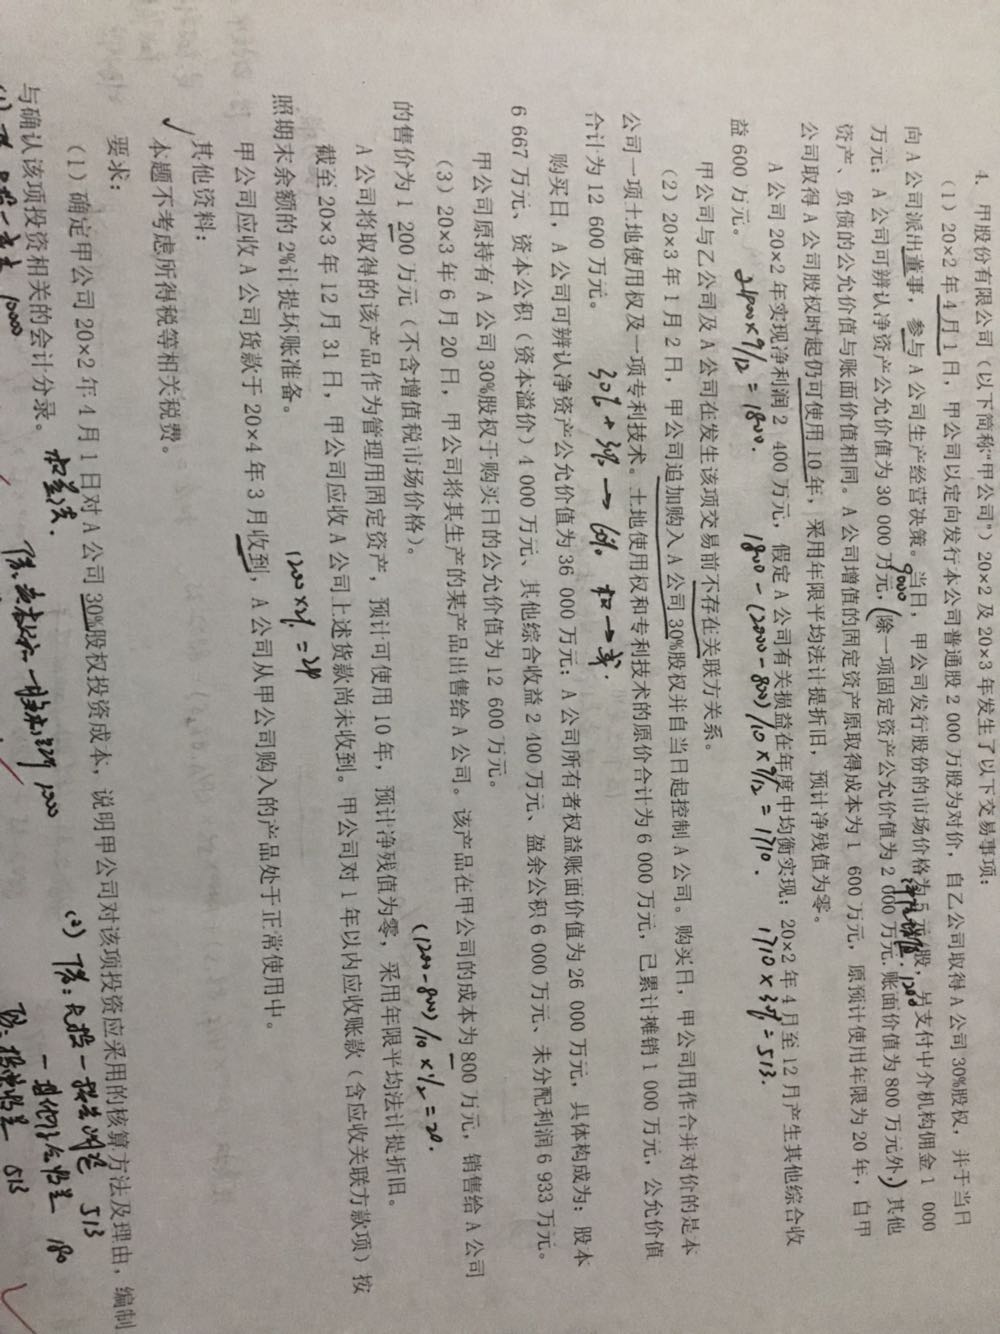 4. 甲股份有限公司（以下简称“甲公司”）20×2 及 20×3 年发生了以下交易事项：
（1）20×2 年 4 月 1 日，甲公司以定向发行本公司普通股 2 000 万股为对价，自乙公司取得 A 公司 30%股权，并于当日
向 A 公司派出董事，参与 A 公司生产经营决策。当日，甲公司发行股份的市场价格为 5 元/股，另支付中介机构佣金 1 000
9000
万元；A 公司可辨认净资产公允价值为 30 000 万元，(除一项固定资产公允价值为 2 000 万元、账面价值为 800 万元外，)其他
1200
资产、负债的公允价值与账面价值相同。A 公司增值的固定资产原取得成本为 1 600 万元，原预计使用年限为 20 年，自甲
公司取得 A 公司股权时起仍可使用 10 年，采用年限平均法计提折旧，预计净残值为零。
A 公司 20×2 年实现净利润 2 400 万元，假定 A 公司有关损益在年度中均衡实现；20×2 年 4 月至 12 月产生其他综合收
益 600 万元。
2400×9/12=1800.
1800-(2000-800)/10×9/12=1710.
1710×30%=513.
甲公司与乙公司及 A 公司在发生该项交易前不存在关联方关系。
（2）20×3 年 1 月 2 日，甲公司追加购入 A 公司 30%股权并自当日起控制 A 公司。购买日，甲公司用作合并对价的是本
公司一项土地使用权及一项专利技术。土地使用权和专利技术的原价合计为 6 000 万元，已累计摊销 1 000 万元，公允价值
合计为 12 600 万元。
30%+30%→60% 权→成.
购买日，A 公司可辨认净资产公允价值为 36 000 万元；A 公司所有者权益账面价值为 26 000 万元，具体构成为：股本
6 667 万元、资本公积（资本溢价）4 000 万元、其他综合收益 2 400 万元、盈余公积 6 000 万元、未分配利润 6 933 万元。
甲公司原持有 A 公司 30%股权于购买日的公允价值为 12 600 万元。
（3）20×3 年 6 月 20 日，甲公司将其生产的某产品出售给 A 公司。该产品在甲公司的成本为 800 万元，销售给 A 公司
的售价为 1 200 万元（不含增值税市场价格）。
(1200-800)/10×1/2=20.
A 公司将取得的该产品作为管理用固定资产，预计可使用 10 年，预计净残值为零，采用年限平均法计提折旧。
截至 20×3 年 12 月 31 日，甲公司应收 A 公司上述货款尚未收到。甲公司对 1 年以内应收账款（含应收关联方款项）按
照期末余额的 2%计提坏账准备。
1200×2%=24
甲公司应收 A 公司货款于 20×4 年 3 月收到，A 公司从甲公司购入的产品处于正常使用中。
其他资料：
本题不考虑所得税等相关税费。
要求：
（1）确定甲公司 20×2 年 4 月 1 日对 A 公司 30%股权投资成本，说明甲公司对该项投资应采用的核算方法及理由，编制
与确认该项投资相关的会计分录。
权益法.
10000
1000
(2)
513
180
513